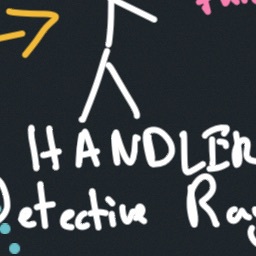 HANDLER
Detective Ray